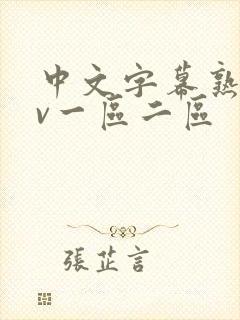 中文字幕熟
v一區二區
張芷言